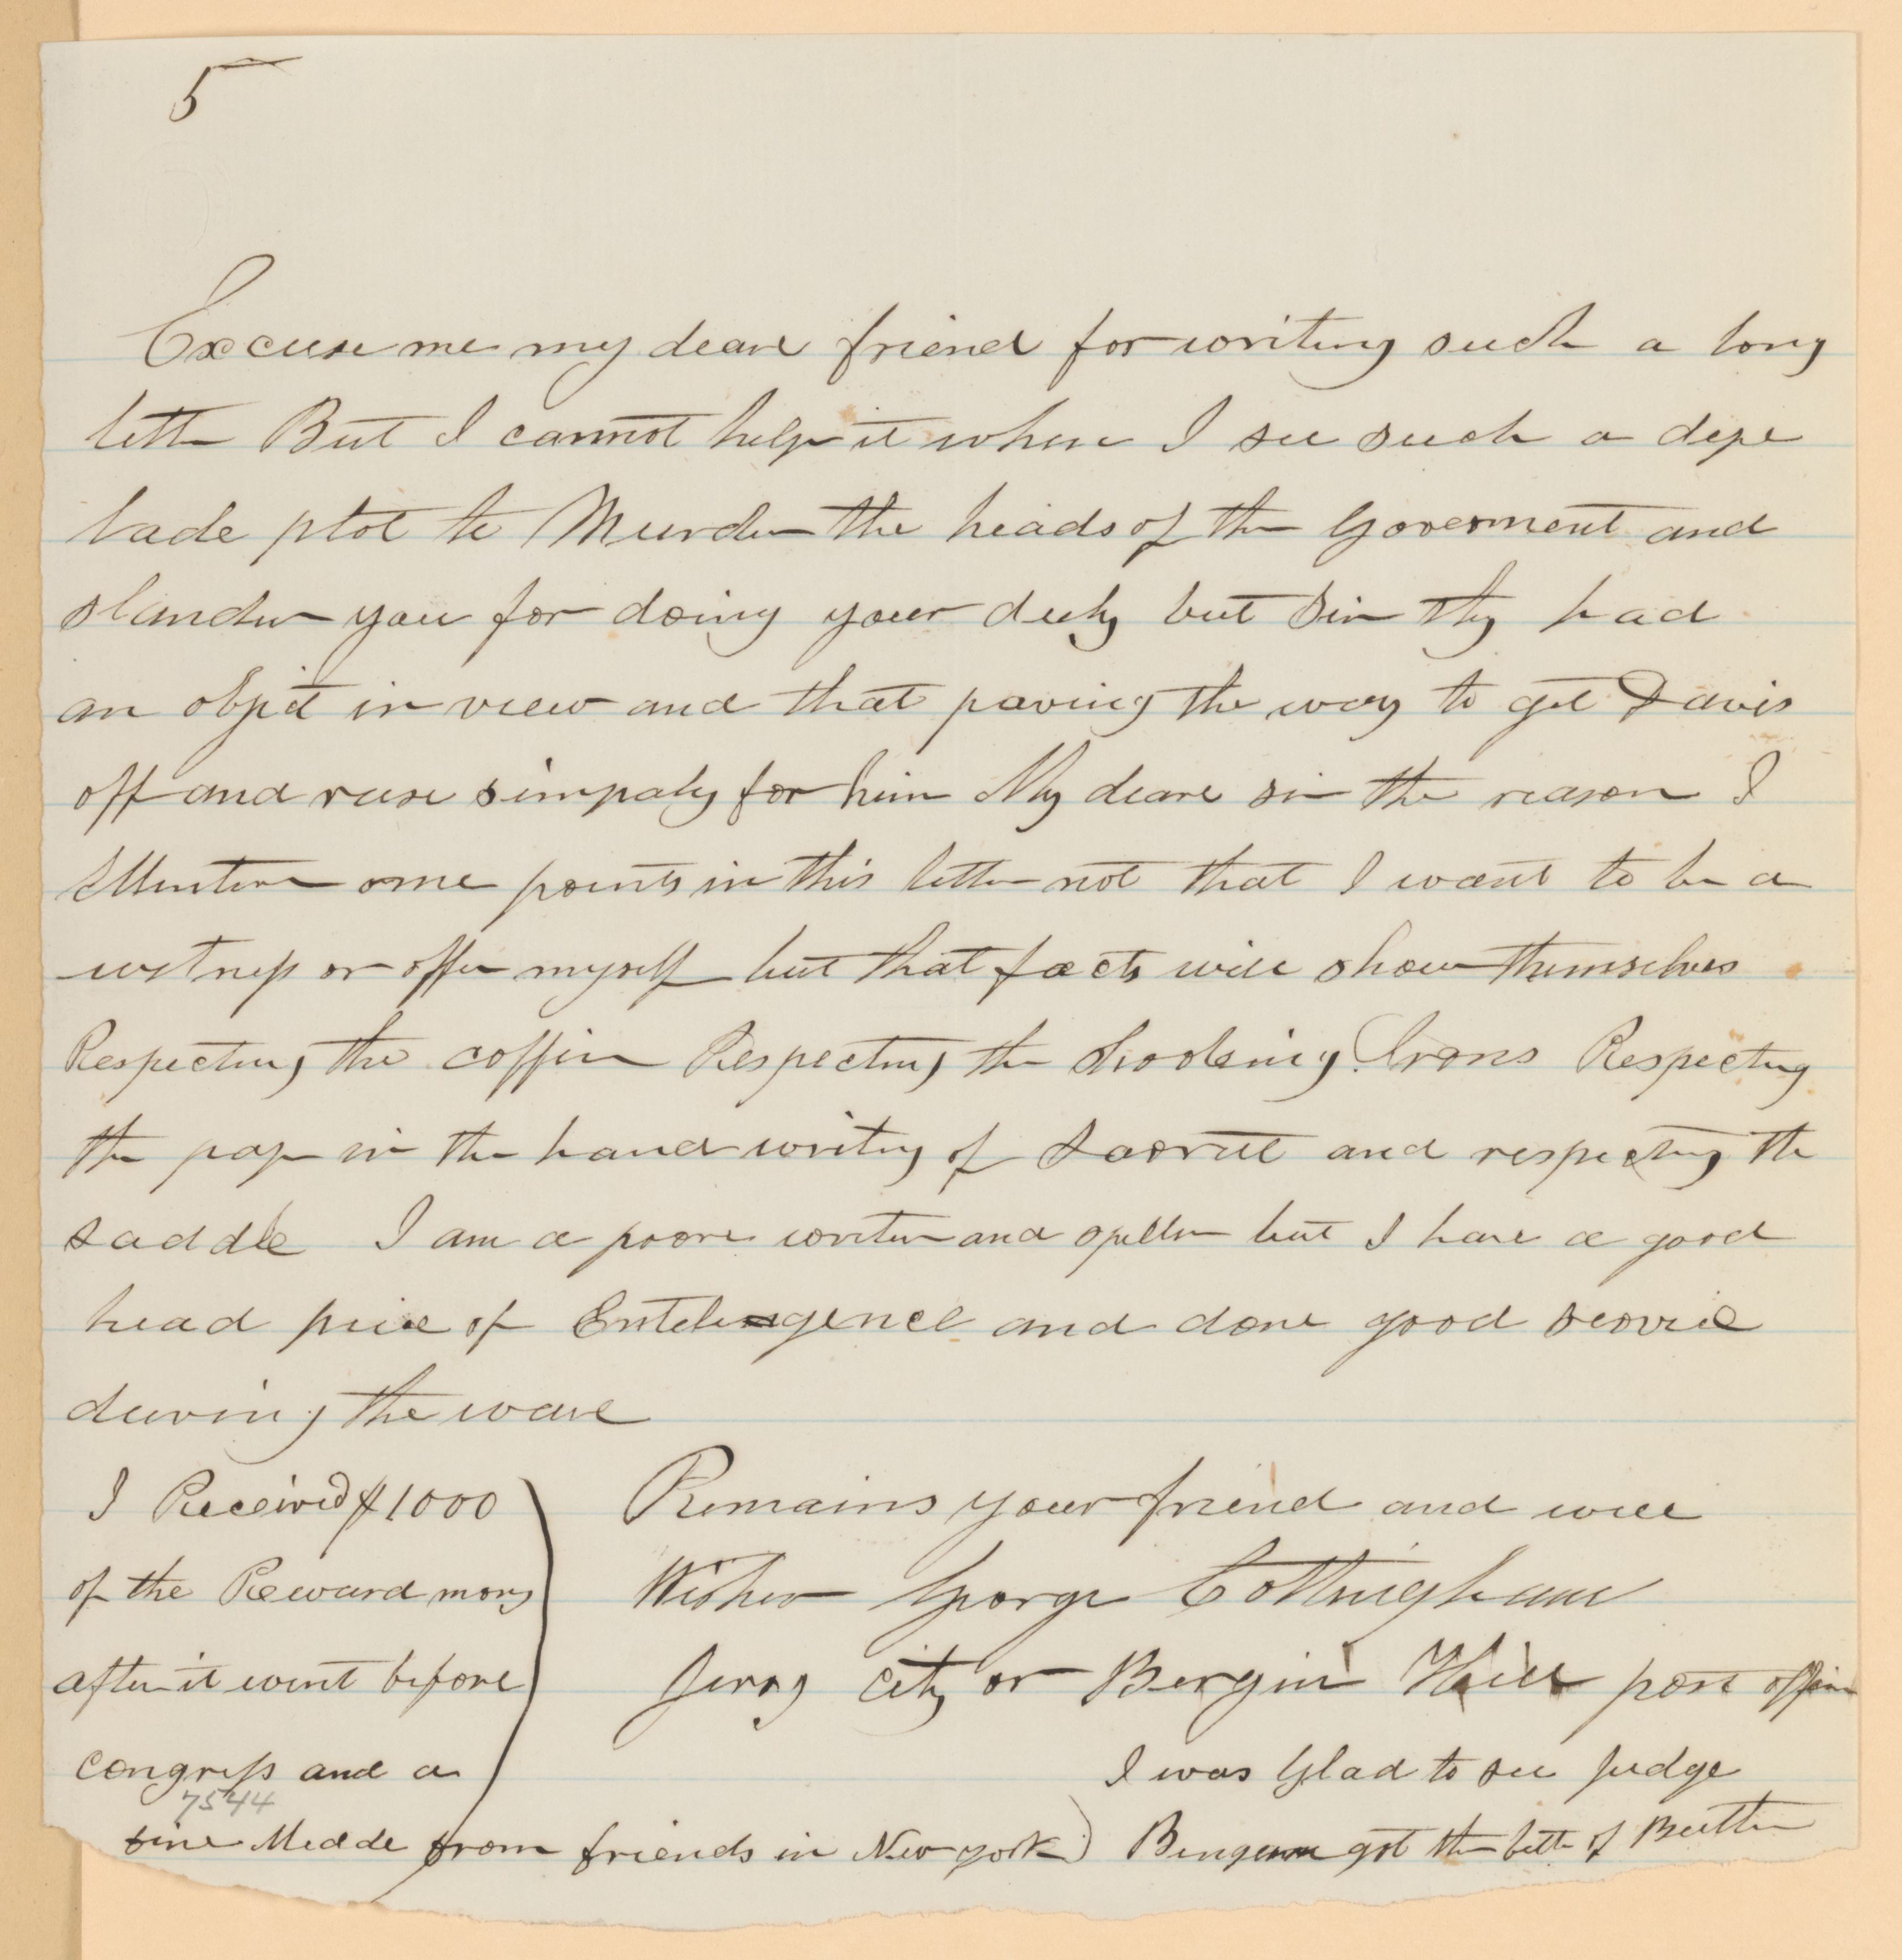 5
Excuse me my deare friend for writing such a long
letter But I cannot help it when I see such a depe
lade plot to Murder the heads of the Goverment and
slander you for doing your duty but Sir they had
an objet in view and that paving the way to get Davis
off and rase simpaty for him My deare sir the reason I
Mention ome points in this letter not that I want to be a
witness or offer myself but that facts will show themselves
Respecting the coffin Respecting the Irons Respecting
the paper in the hand writing of and respecting the
saddle I am a poore writer and speller but I have a good
head piece of and done good service
during the ware
I Received $1000
of the Reward mony
after it went before
congress and a
7544
fine Medde from friends in New york)
Remains your friend and well
Wisher George Cottingham
Jersy city or Bergin Hill post office
I was Glad to see Judge
got the bette of Buttler